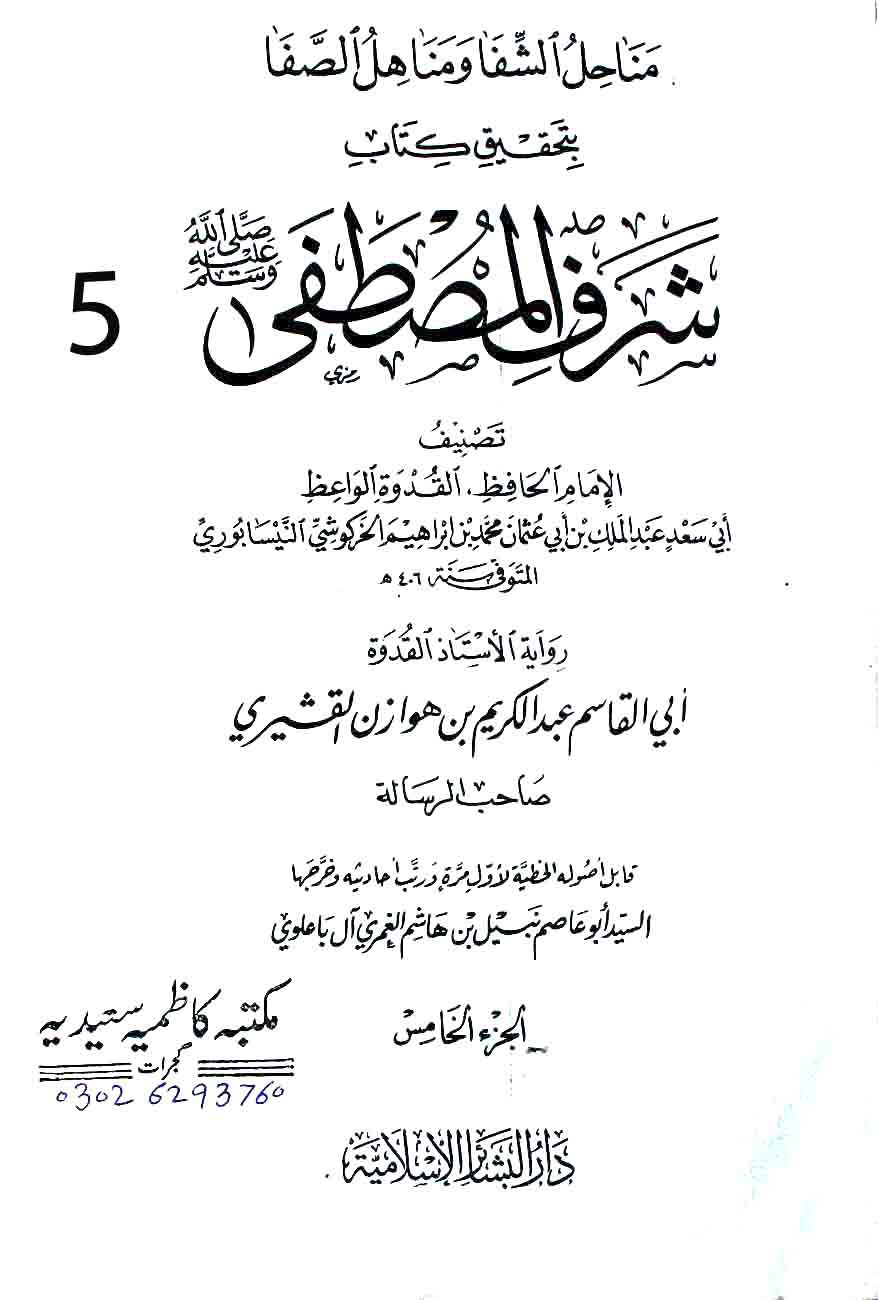 مَنَاحِلُ الشِّفَا وَمَنَاهِلُ الصَّفَا
بِتَحْقِيقِ كِتَابِ
شَرَفِ المُصْطَفَى
صَلَّى اللَّهُ عَلَيْهِ وَسَلَّم
رمزي
5
تَصْنِيفُ
الإِمَامِ الحَافِظِ، القُدْوَةِ الوَاعِظِ
أَبِي سَعْدٍ عَبْدِ المَلِكِ بْنِ أَبِي عُثْمَانَ مُحَمَّدِ بْنِ إِبْرَاهِيمَ الخَرْكُوشِيِّ النَّيْسَابُورِيِّ
المتَوَفَّى سَنَة ٤٠٦ هـ
رِوَايَة الأُسْتَاذ القُدوَة
أبي القاسم عبد الكريم بن هوازن القشيري
صَاحِب الرسَالة
قابل أصوله الخطيَّة لأوّل مرَّة وَرتَّب أحاديثه وخرَّجها
السيّد أبو عاصم نبيل بن هاشم الغمري آل باعلوي
الجزء الخامس
مکتبہ کاظمیہ سیّدیہ
گجرات
0302 6293760
دَارُ البَشَائِر الإِسْلَامِيَّة